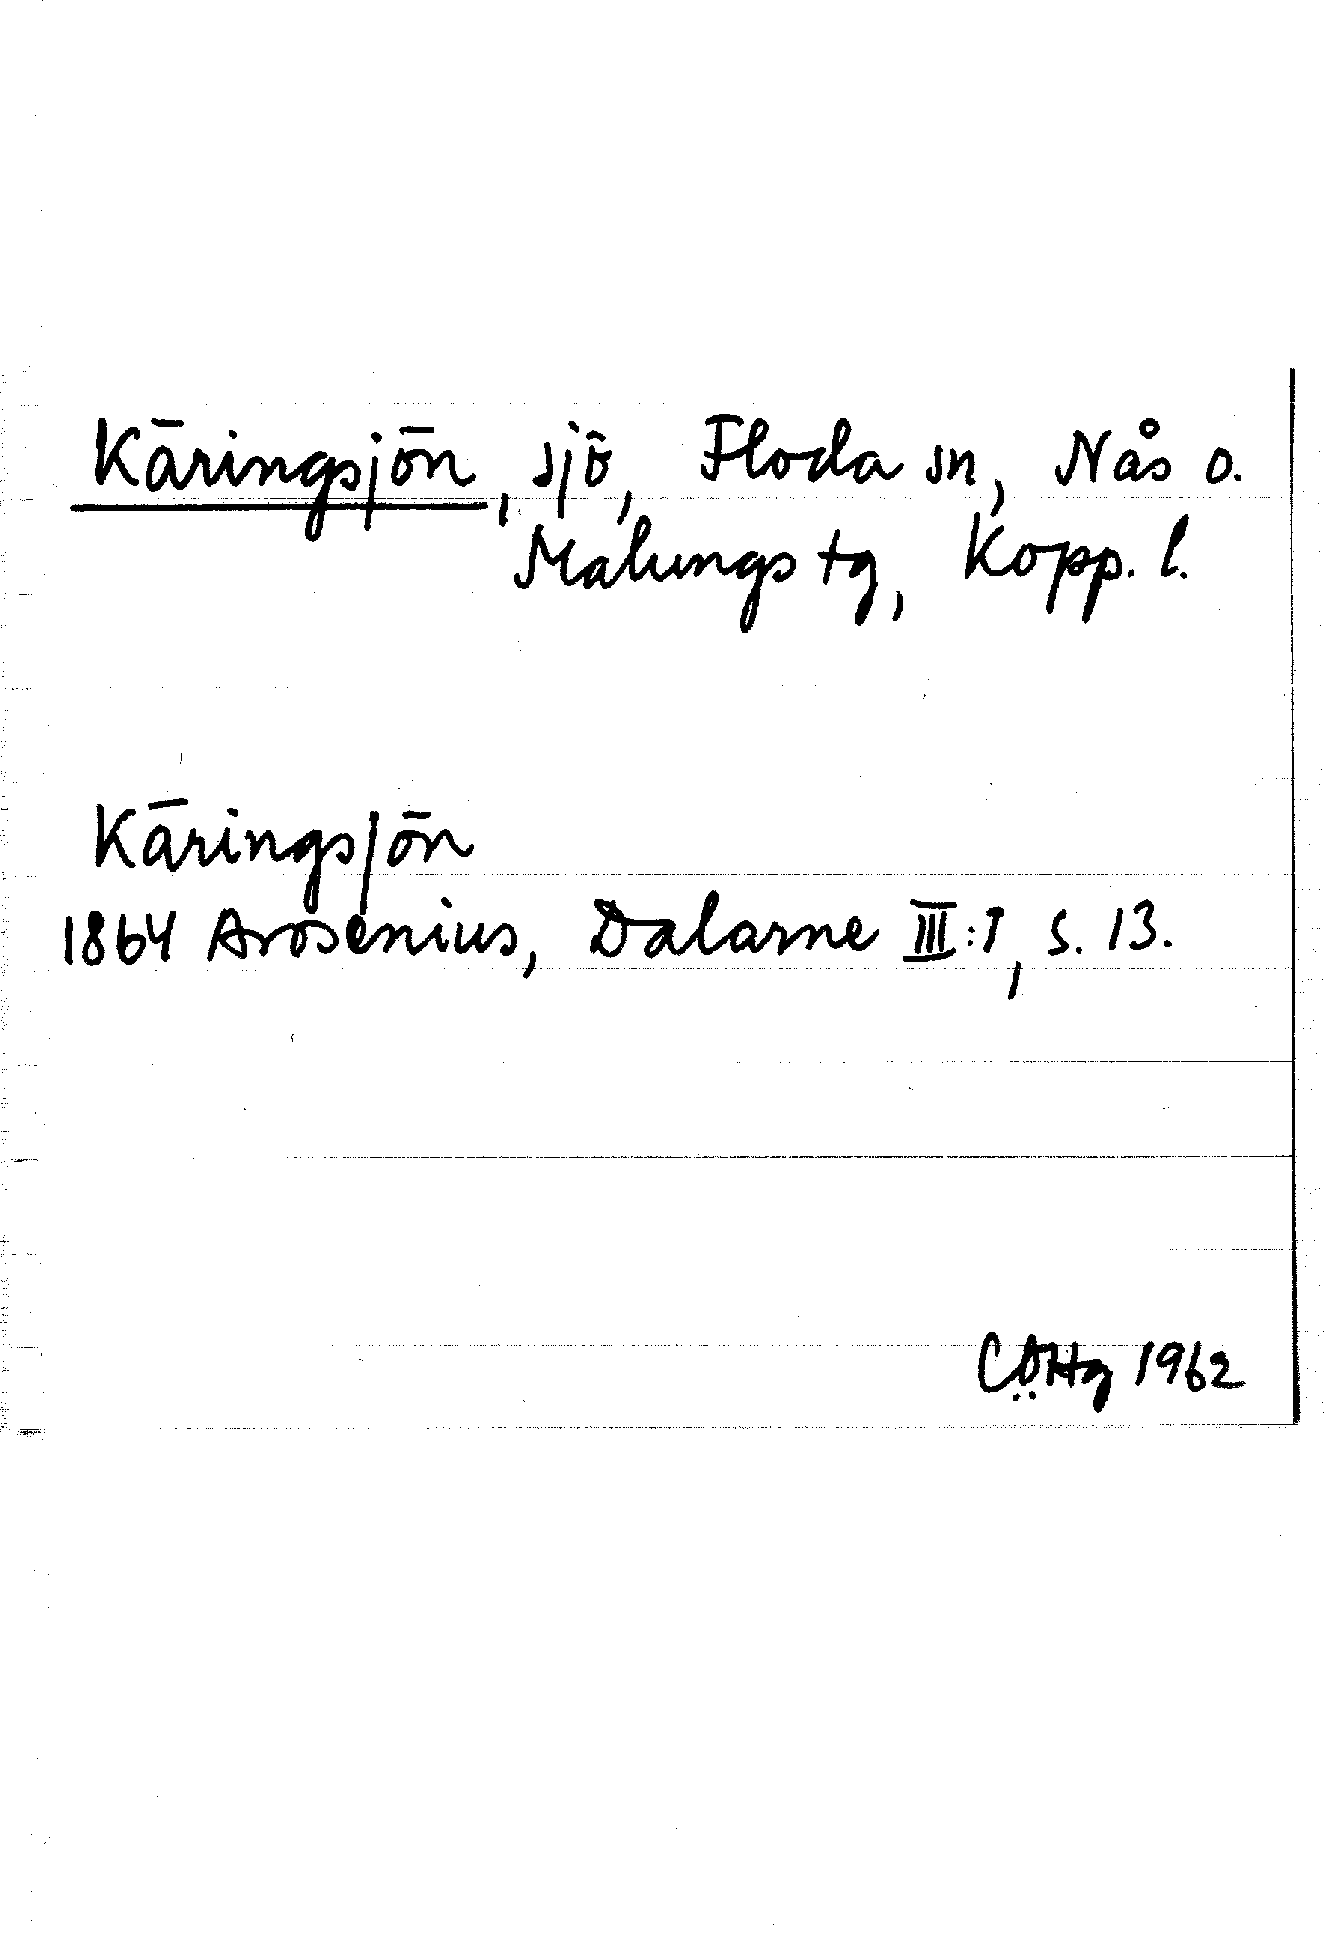 Käringsjön, sjö, Floda sn, Nås o.
Malungs tg, Kopp. l.
Käringsjön
1864 Arosenius, Dalarne III:1, s. 13.
CÖHg 1962